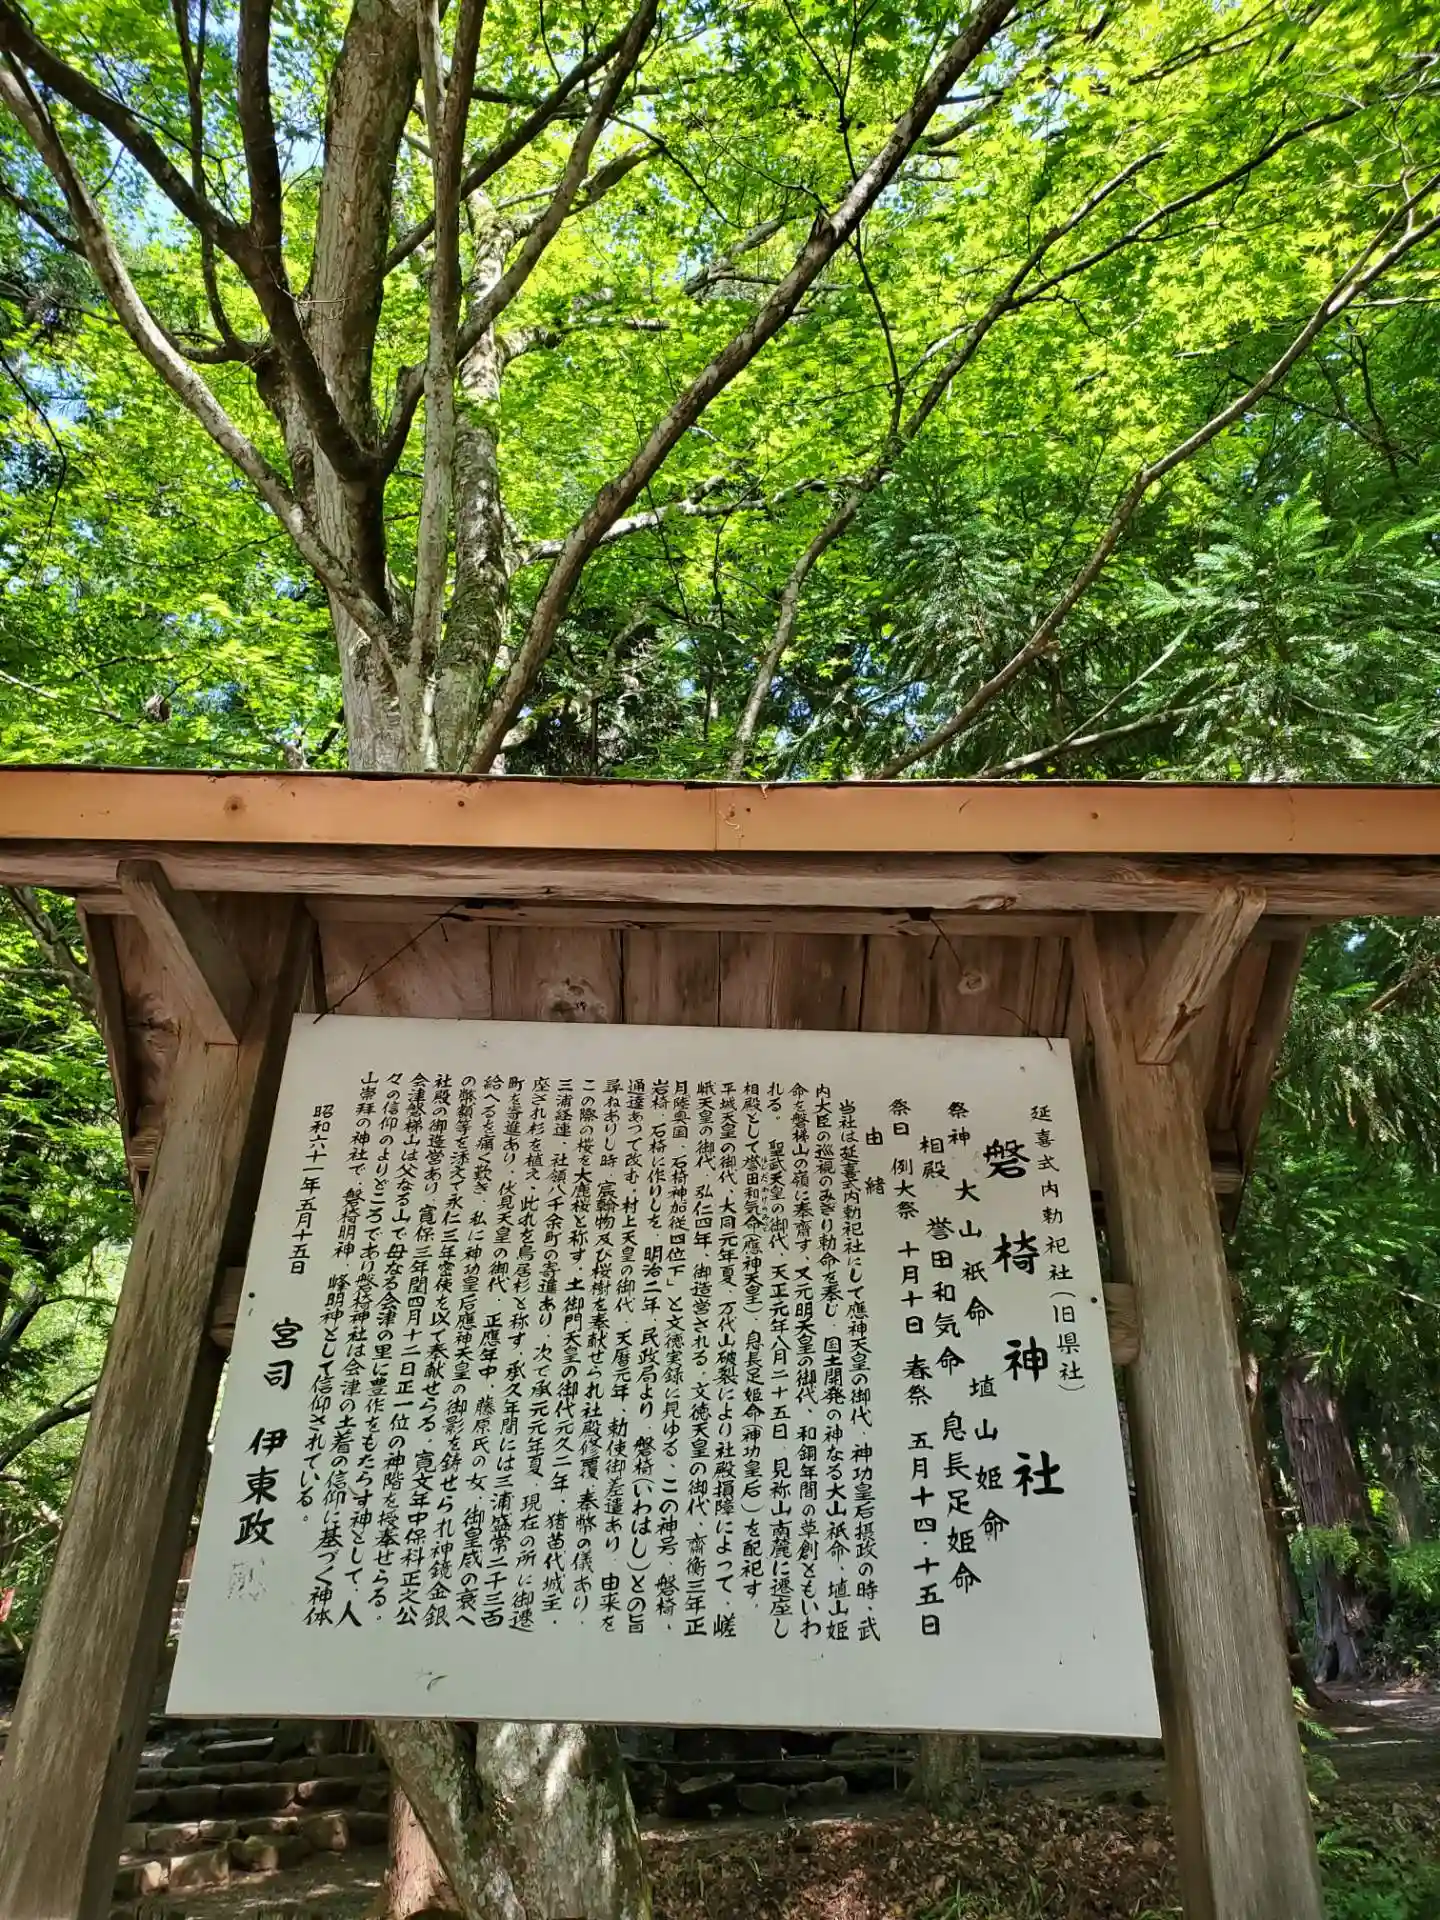 延喜式内勅祀社(旧県社)
磐椅神社
祭神 大山祇命 埴山姫命
相殿 誉田和気命 息長足姫命
祭日 例大祭 十月十日 春祭 五月十四・十五日
由緒
当社は延喜式内勅祀社にして應神天皇の御代、神功皇后摂政の時、武
内大臣の巡視のみぎり勅命を奉じ、国土開発の神なる大山祇命、埴山姫
命を磐梯山の嶺に奉齋す、又元明天皇の御代、和銅年間の草創ともいわ
れる。聖武天皇の御代、天正元年八月二十五日、見祢山南麓に遷座し
相殿として誉田和気命(應神天皇)、息長足姫命(神功皇后)を配祀す。
平城天皇の御代、大同元年夏、万代山破裂により社殿損障によって、嵯
峨天皇の御代、弘仁四年、御造営される。文徳天皇の御代、齋衡三年正
月陸奥国、石椅神加従四位下」と文徳実録に見ゆる、この神号、磐椅、
岩椅、石椅に作りしを、明治二年、民政局より、磐椅(いわはし)との旨
通達あって改む。村上天皇の御代、天暦元年、勅使御差遣あり、由来を
尋ねありし時、宸翰物及び桜樹を奉献せられ社殿修覆、奉幣の儀あり、
この際の桜を大鹿桜と称す。土御門天皇の御代元久二年、猪苗代城主、
三浦経連、社領八千余町の寄進あり、次で承元元年夏、現在の所に御遷
座され杉を植え、此れを鳥居杉と称す。承久年間には三浦盛常二千三百
町を寄進あり、伏見天皇の御代、正應年中、藤原氏の女、御皇威の衰へ
給へるを痛く歎き、私に神功皇后應神天皇の御影を鋳せられ神鏡金銀
の幣額等を添えて永仁三年密使を以て奉献せらる。寛文年中保科正之公
社殿の御造営あり、寛保三年閏四月十二日正一位の神階を授奉せらる。
会津磐梯山は父なる山で母なる会津の里に豊作をもたらす神として、人
々の信仰のよりどころであり磐椅神社は会津の土着の信仰に基づく神体
山崇拝の神社で、磐椅明神、峰明神として信仰されている。
昭和六十一年五月十五日
宮司 伊東政